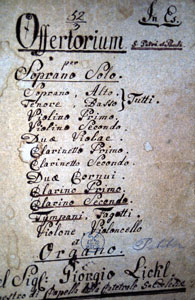 52
In Es.
Offertorium
S. Petri et Pauli
per
Soprano Solo.
Soprano, Alto,
Tenore, Basso } Tutti.
Violino Primo,
Violino Secondo,
Duæ Violæ
Clarinetto Primo,
Clarinetto Secondo.
Due Cornui
Clarino Primo,
Clarino Secondo
Tympani, Fagotti
Violone, Violoncello
et
Organo.
del Sigl: Giorgio Lickl.
maestro di Capella della Catedrale